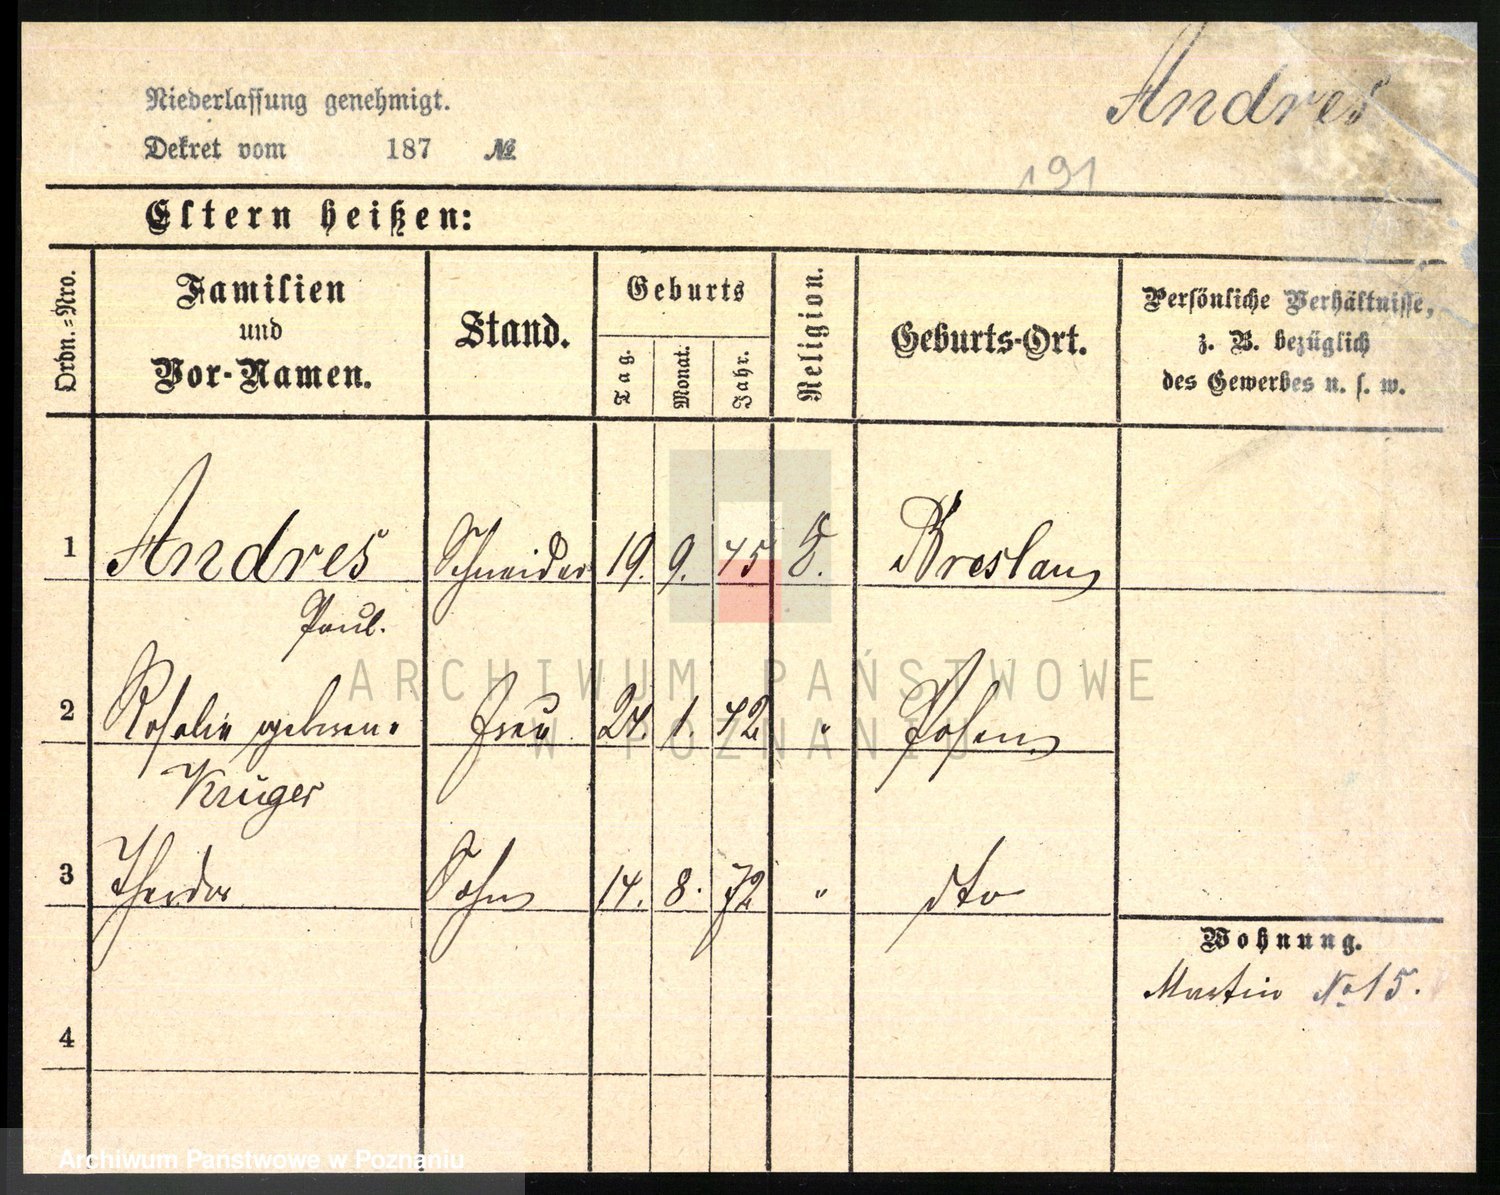 Andres
Niederlassung genehmigt.
Dekret vom 187 №
191
Eltern heißen:
Ordn.-Nro.
Familien
und
Vor-Namen.
Stand.
Geburts
Tag.
Monat.
Jahr.
Religion.
Geburts-Ort.
Persönliche Verhältnisse,
z. B. bezüglich
des Gewerbes u. s. w.
1 Andres Schneider 19. 9. 45 Breslau
Paul.
2 Rosalie geboren. Frau 24. 1. 42 " Posen
Krüger
3 Theodor Sohn 14. 8. 72 " dto
Wohnung.
Martin No 15.
4
ARCHIWUM PAŃSTWOWE
W POZNANIU
Archiwum Państwowe w Poznaniu